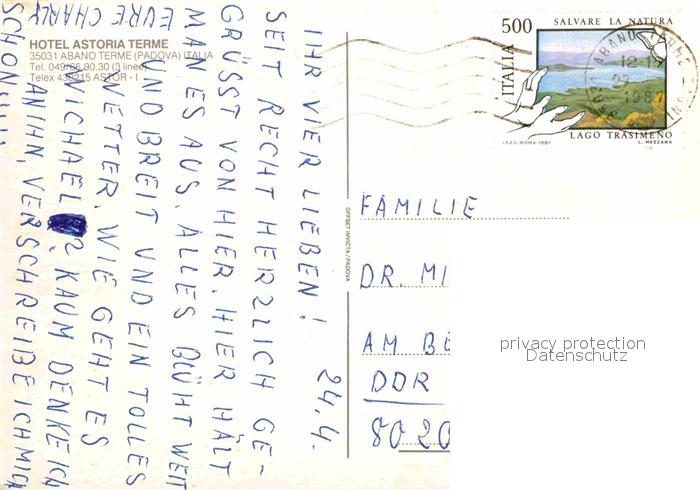 HOTEL ASTORIA TERME
35031 ABANO TERME (PADOVA) ITALIA
Tel. 049/66.90.30 (3 linee)
Telex 430215 ASTOR - I
24.4.
IHR VIER LIEBEN!
SEIT RECHT HERZLICH GE-
GRÜSST VON HIER. HIER HÄLT
MAN ES AUS. ALLES BLÜHT WEIT
UND BREIT UND EIN TOLLES
WETTER. WIE GEHT ES
MICHAEL? KAUM DENKE ICH
AN IHN, VERSCHREIBE ICH MICH
SCHON
EURE CHARLY
OFFSET INVICTA/PADOVA
500 SALVARE LA NATURA
ITALIA
LAGO TRASIMENO
I.P.Z.S.-ROMA-1987 L. MEZZANA
ABANO
FAMILIE
DR. MI
AM BE
DDR
8020
privacy protection
Datenschutz